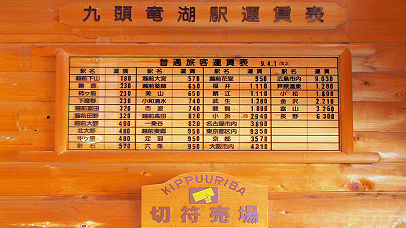 九頭竜湖駅運賃表
普通旅客運賃表 9.4.1改正
駅名 運賃 駅名 運賃 駅名 運賃 駅名 運賃
越前下山 180 越前大宮 570 越前花堂 950 広島市内 9,030
勝原 230 越前薬師 650 福井 1,110 芦原温泉 1,280
柿ヶ島 230 美山 650 鯖江 1,110 小松 1,690
下唯野 230 小和清水 740 武生 1,280 金沢 2,210
越前富田 320 市波 740 敦賀 1,890 富山 3,260
越前田野 320 越前高田 820 小浜 2,940 長野 6,300
越前大野 400 一乗谷 820 名古屋市内 3,890
北大野 480 越前東郷 950 東京都区内 9,330
牛ヶ原 480 足羽 950 京都 3,570
計石 570 六条 950 大阪市内 4,310
KIPPUURIBA
切符売場